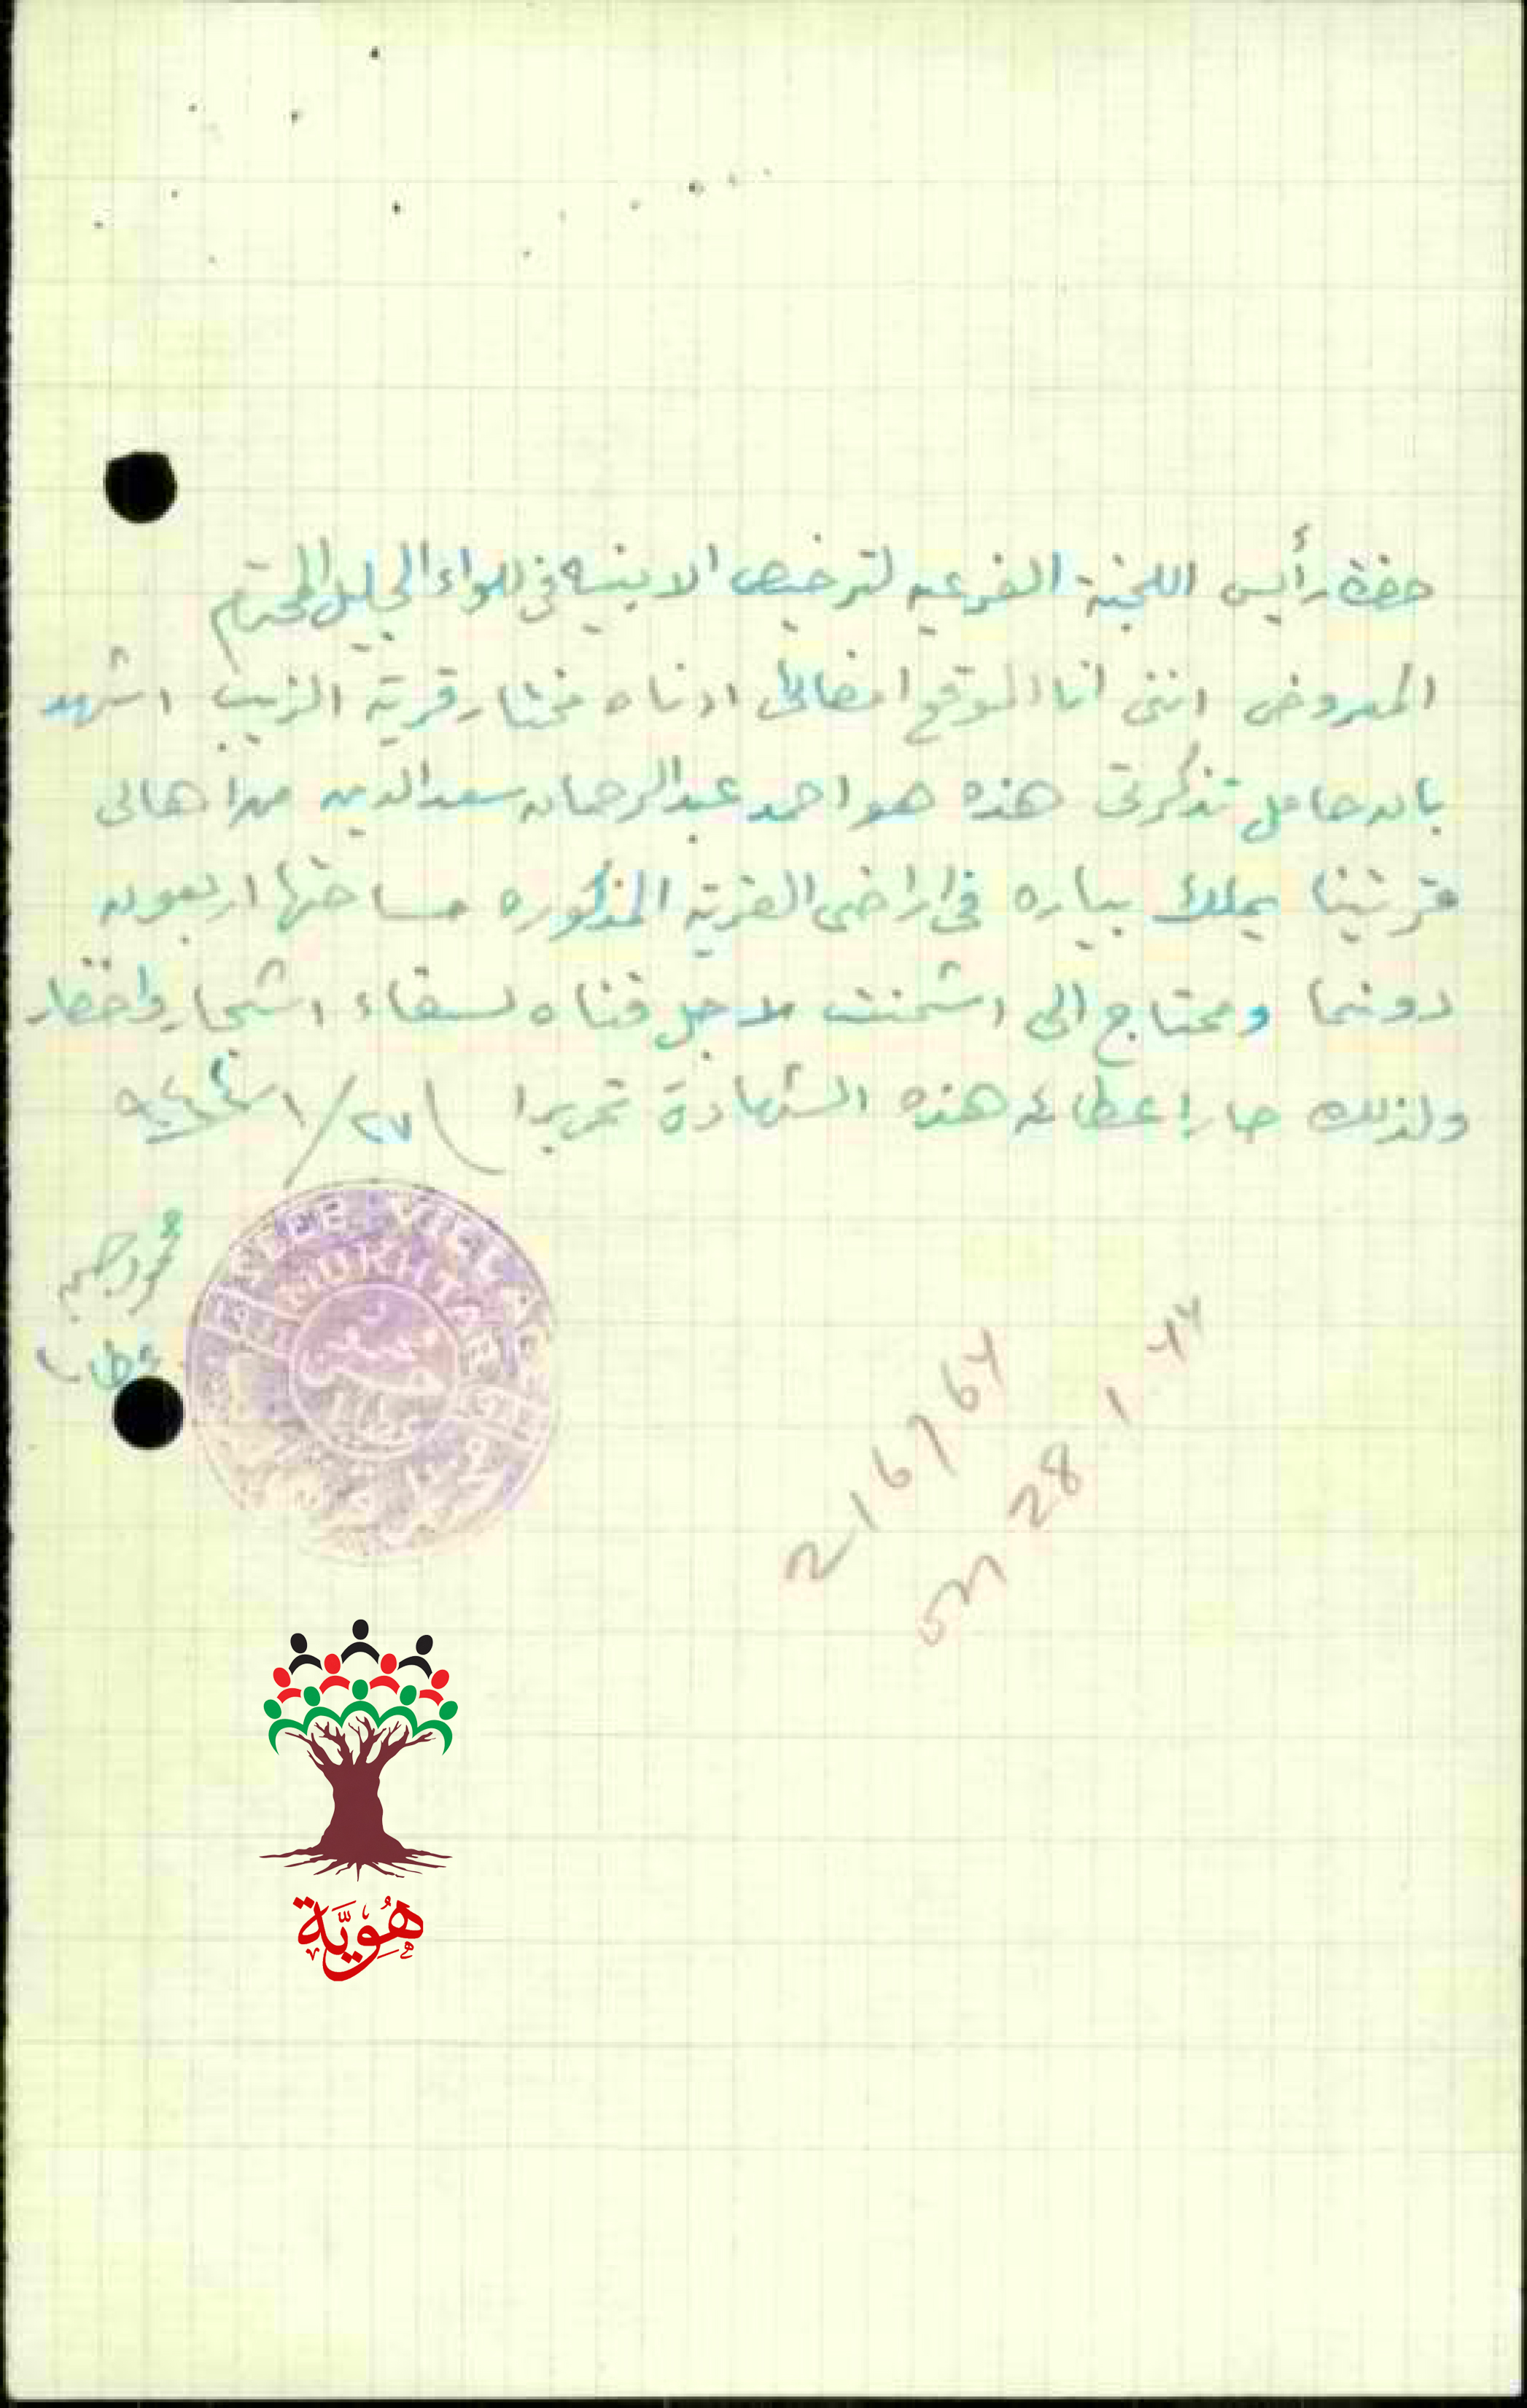 حضرة رأيس اللجنة الفرعيه لترخيص الابنيه في للواء الجليل المحترم
المعروض انني انا الموقع امضائي ادناه مختار قرية الزيب اشهد
بان حامل تذكرتي هذه هو احمد عبد الرحمان سعد الدين من اهالي
قريتنا يملك بياره في اراضي القرية المذكوره مساحتها اربعون
دونما ومحتاج الى اشمنت لاجل قناه لسقاء اشجار واخضار
ولذلك صار اعطائه هذه الشهادة تحريرا ٢٧/١
محمود
عطايا
VILLAGE
MUKHTAR
مختار
2/6/9/64
28 1 44
هُوِيَّة